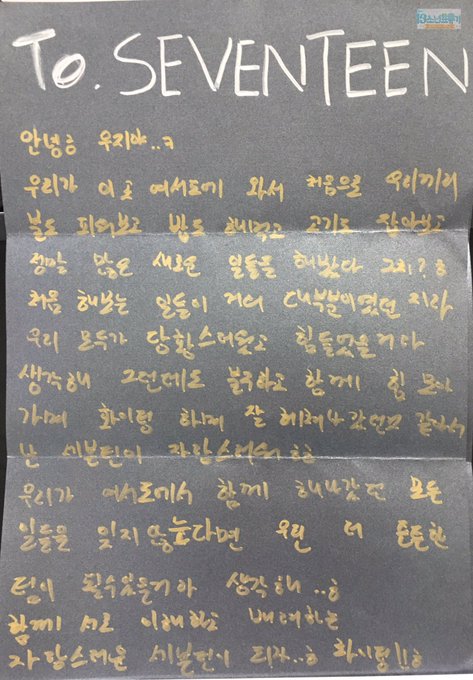 13소년표류기
To. SEVENTEEN
안녕ㅎ 우지야..ㅋ
우리가 이곳 여서도에 와서 처음으로 우리끼리
불도 피워보고 밥도 해먹고 고기도 잡아보고
정말 많은 새로운 일들을 해봤다 그치?ㅎ
처음 해보는 일들이 거의 대부분이였던 지라
우리 모두가 당황스러웠고 힘들었을거다
생각해 그런데도 불구하고 함께 힘 모아
가며 화이팅 하며 잘 헤쳐나갔던것 같아서
난 세븐틴이 자랑스러워 ㅎㅎ
우리가 여서도에서 함께 해나갔던 모든
일들을 잊지 않는다면 우린 더 든든한
팀이 될수있을거야 생각해..ㅎ
함께 서로 이해하고 배려하는
자랑스러운 세븐틴이 되자..ㅎ 화이팅!!ㅎ